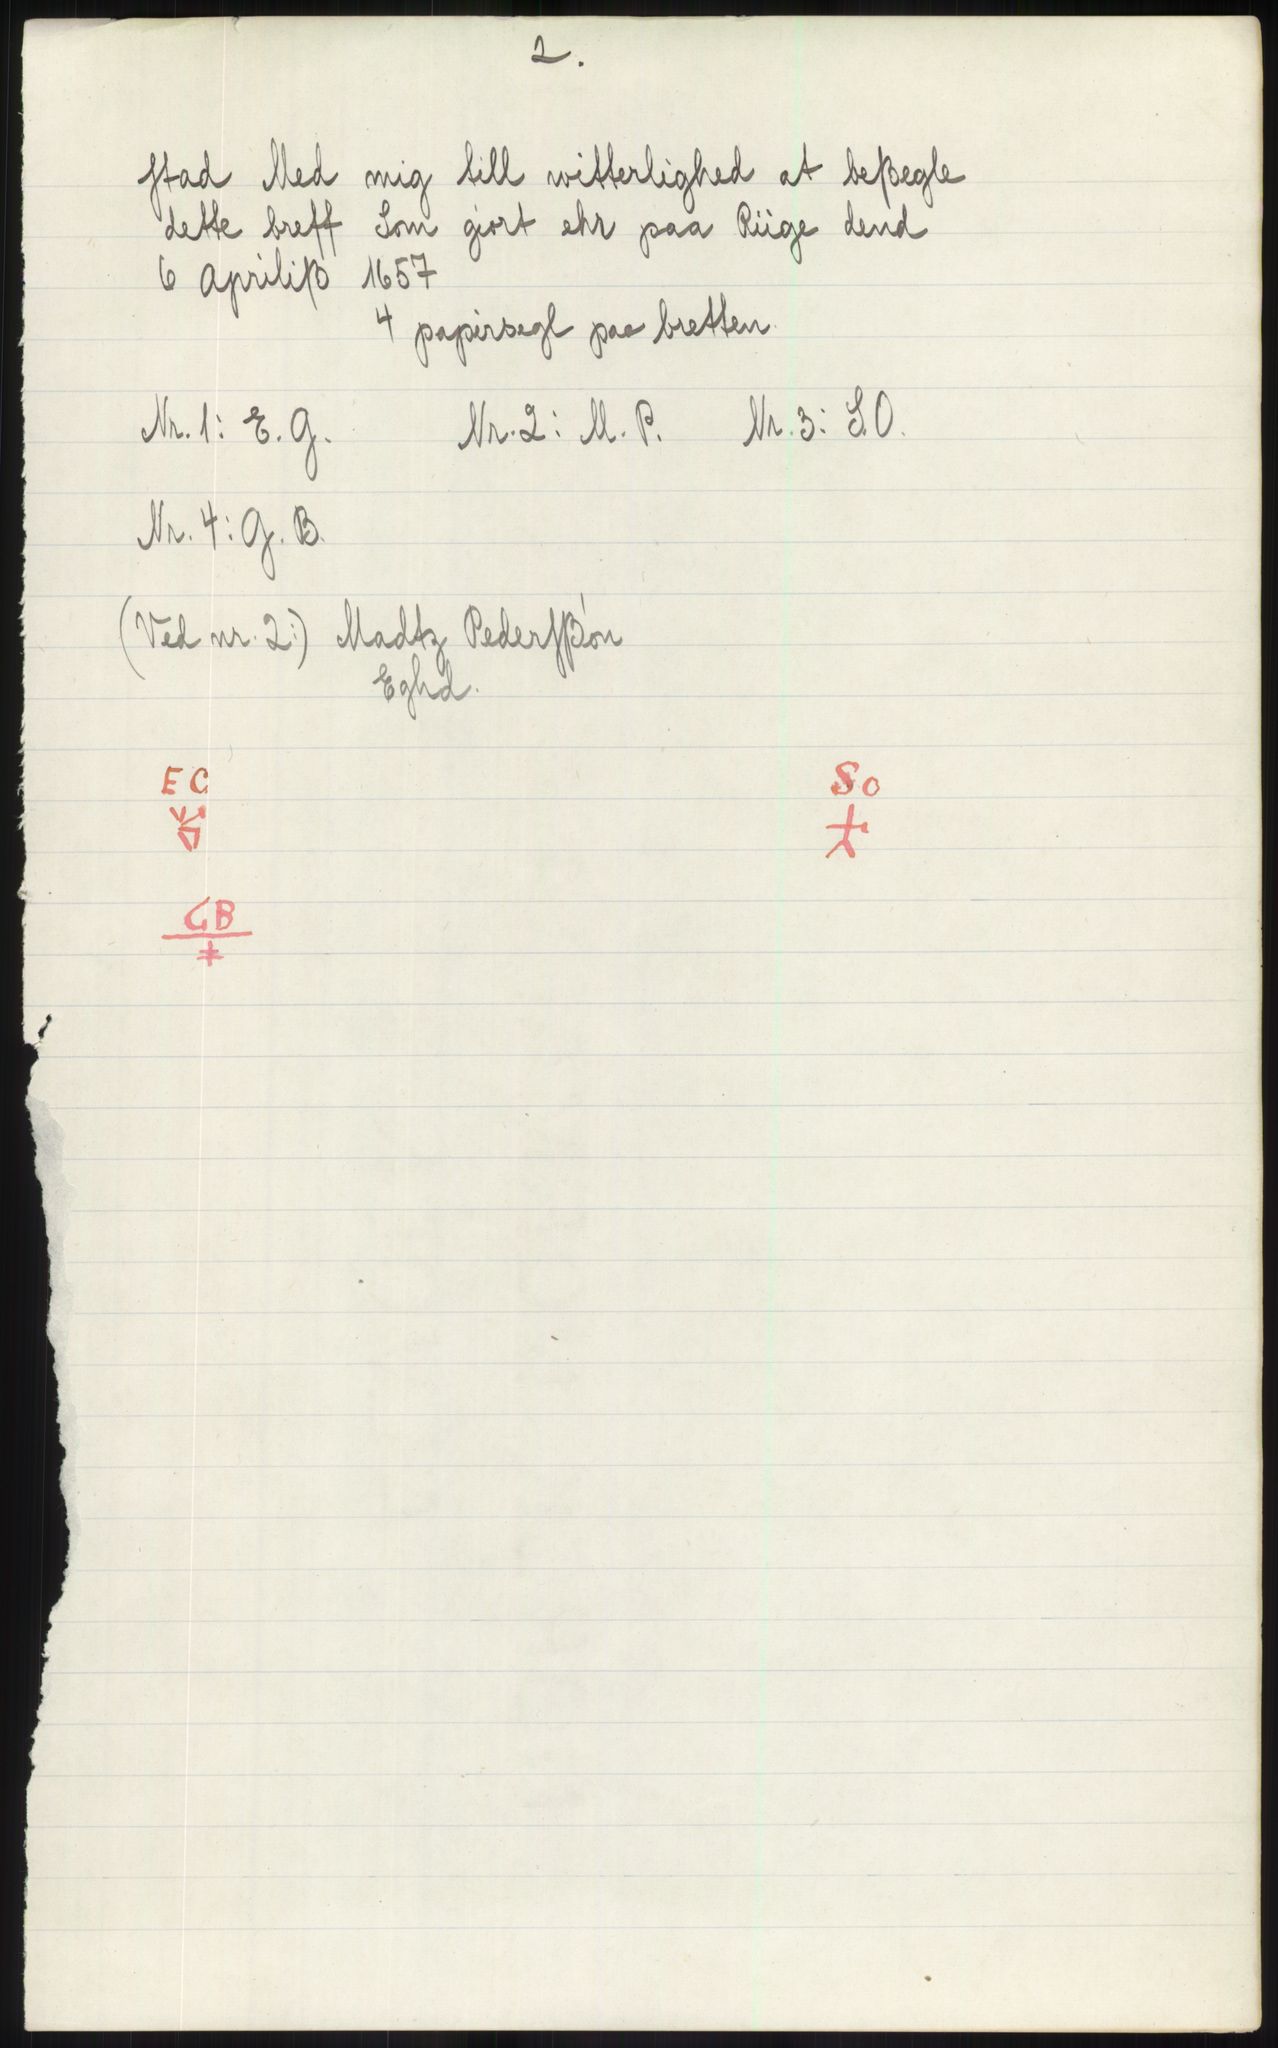 2.
ſtad Med mig till witterlighed at beßegle
dette breff Som giort ehr paa Rüge dend
6 Apriliß 1657
4 papirsegl paa bretten.
Nr. 1: E. G. Nr. 2: M. P. Nr. 3: S.O.
Nr. 4: G. B.
(Ved nr. 2:) Madtz Pederſßón
Eghd.
EC So
GB